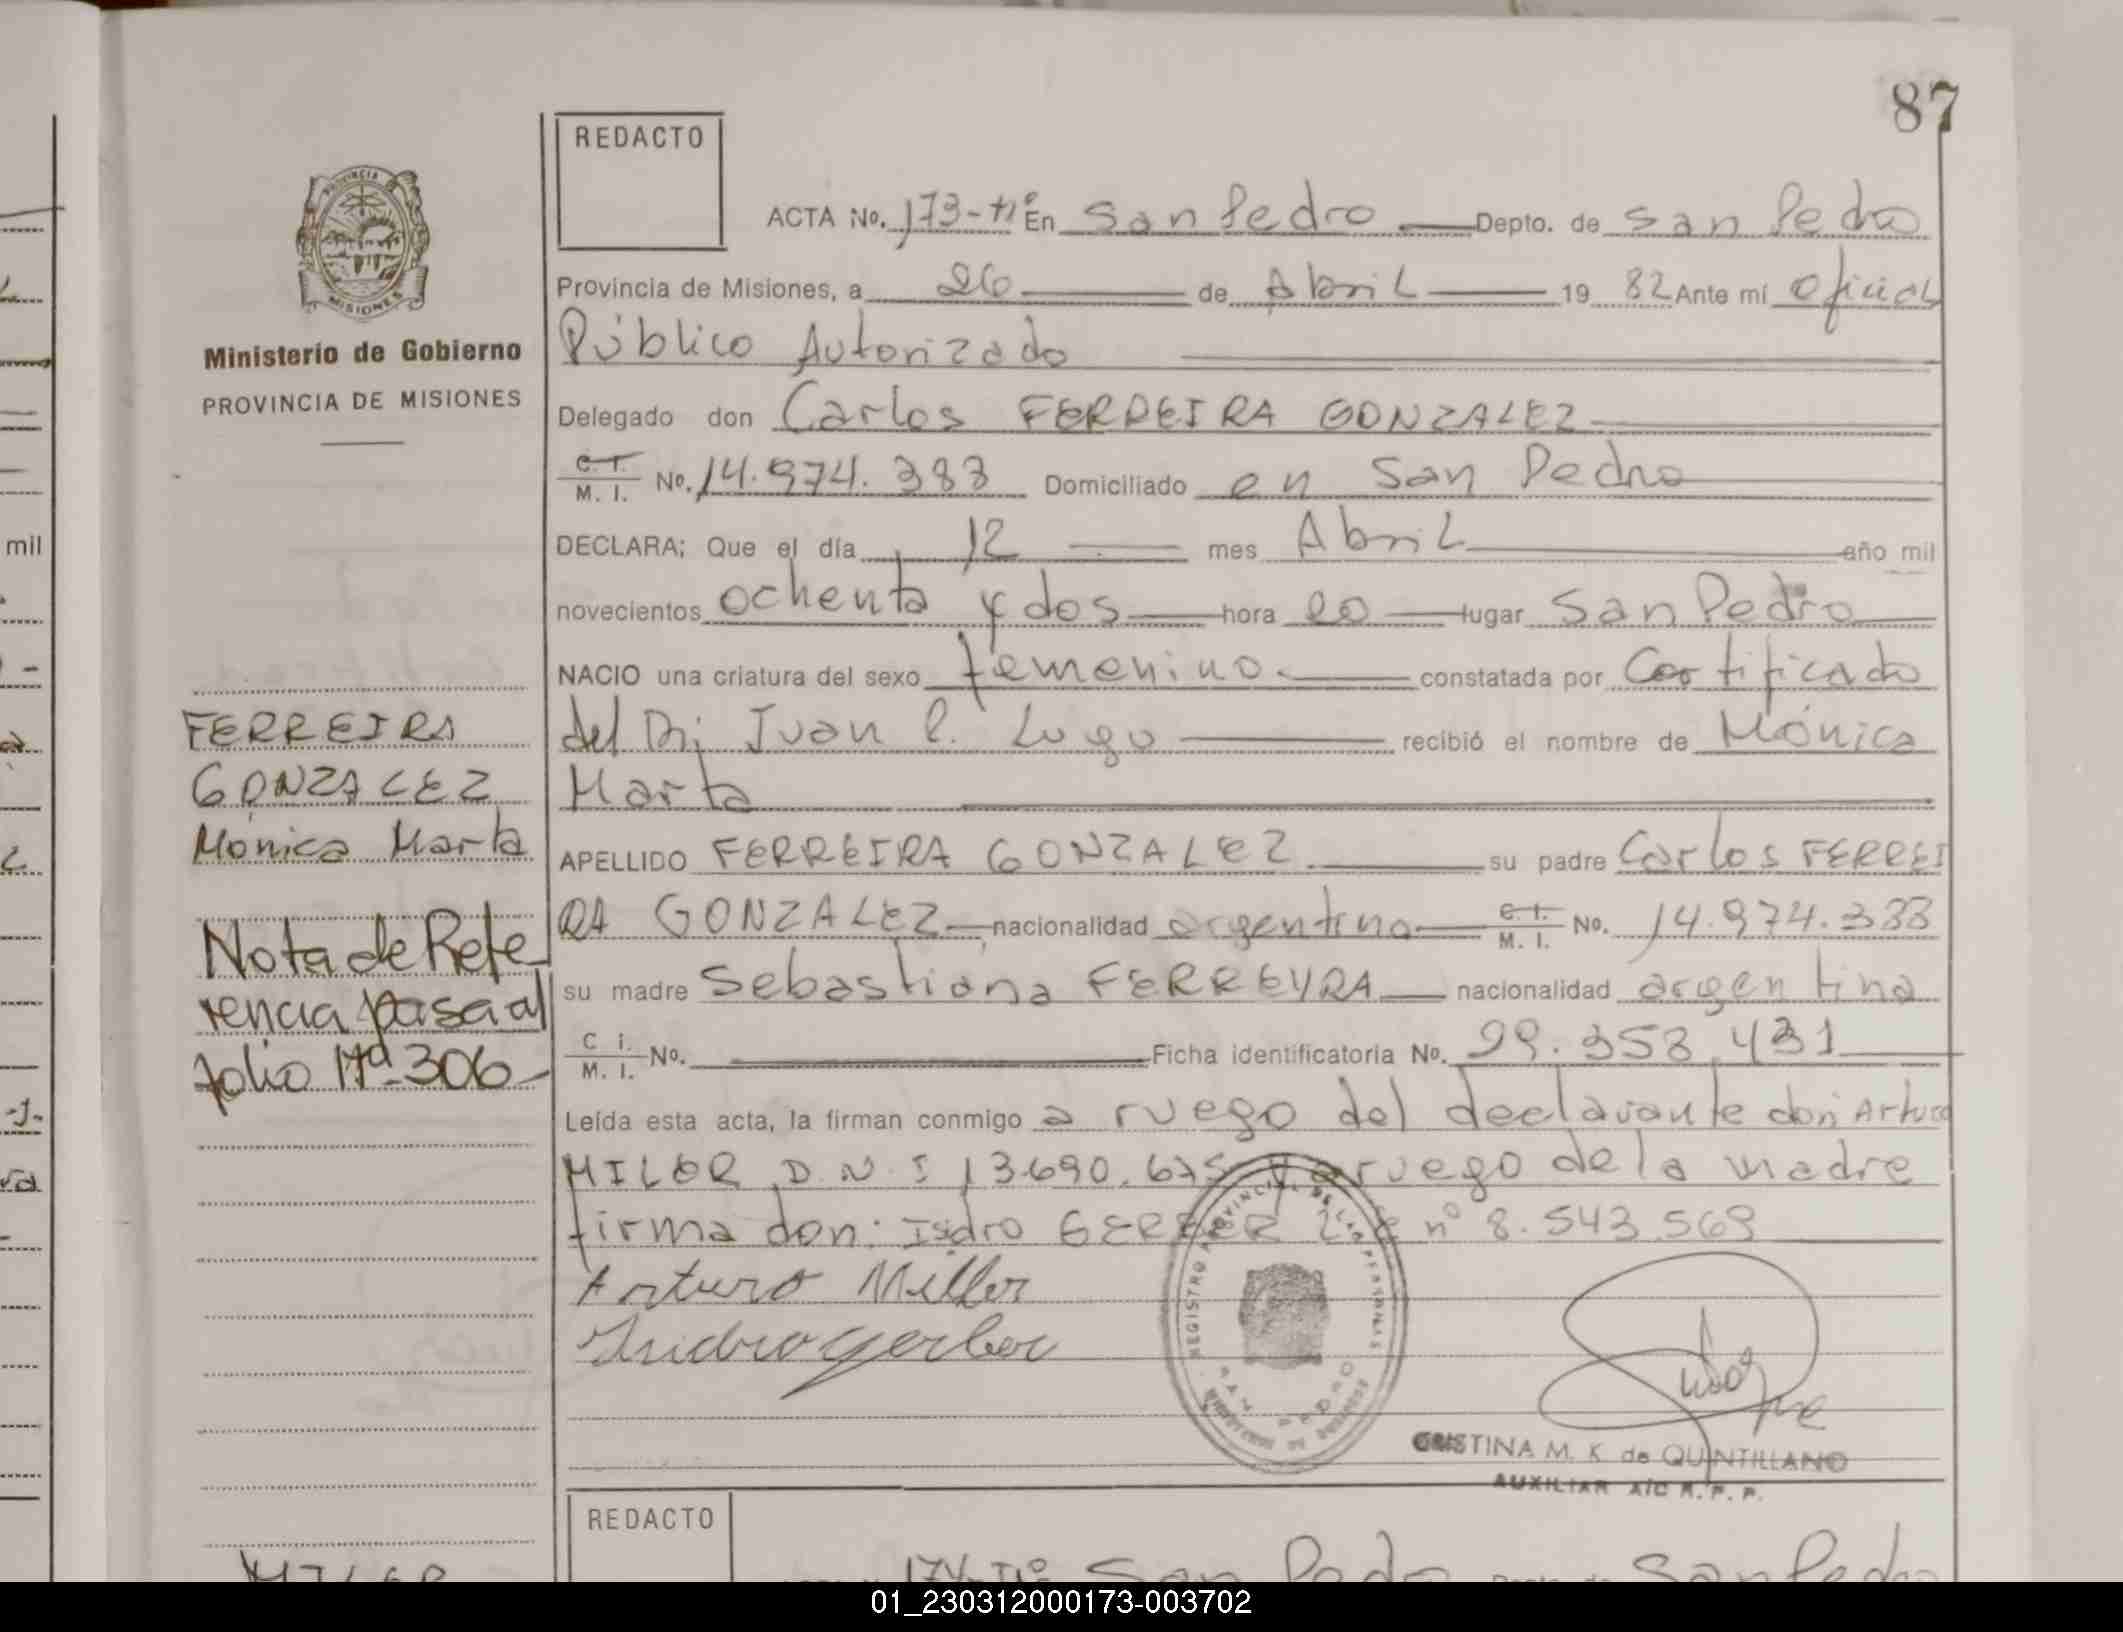 87
REDACTO
ACTA No. 173-tº En San Pedro Depto. de San Pedro
PROVINCIA
MISIONES
Provincia de Misiones, a 26 de Abril 19 82 Ante mí Oficial
Ministerio de Gobierno
PROVINCIA DE MISIONES
Público Autorizado
Delegado don Carlos FERREIRA GONZALEZ
C. I. M. I. No. 14.974.383 Domiciliado en San Pedro
DECLARA; Que el día 12 mes Abril año mil
novecientos ochenta y dos hora 20 lugar San Pedro
NACIO una criatura del sexo femenino constatada por Certificado
del Dr; Juan C. Lugo recibió el nombre de Mónica
Marta
APELLIDO FERREIRA GONZALEZ su padre Carlos FERREI
RA GONZALEZ nacionalidad argentino C. I. M. I. No. 14.974.383
su madre Sebastiana FERREYRA nacionalidad argentina
C I. M. I. No. Ficha identificatoria No. 99.358.431
Leída esta acta, la firman conmigo a ruego del declarante don Arturo
MILER D.N.I 13.690.675 y a ruego de la madre
firma don: Isidro GERBER L.E nº 8.543.569
Arturo Miller
Isidro gerber
FERREIRA
GONZALEZ
Mónica Marta
Nota de Refe
rencia pasa al
folio Nº 306-
REGISTRO PROVINCIAL DE LAS PERSONAS
SAN PEDRO
CRISTINA M. K. de QUINTILLANO
AUXILIAR A/C R. P. P.
mil
REDACTO
174-Tº San Pedro San Pedro
MILER
01_230312000173-003702